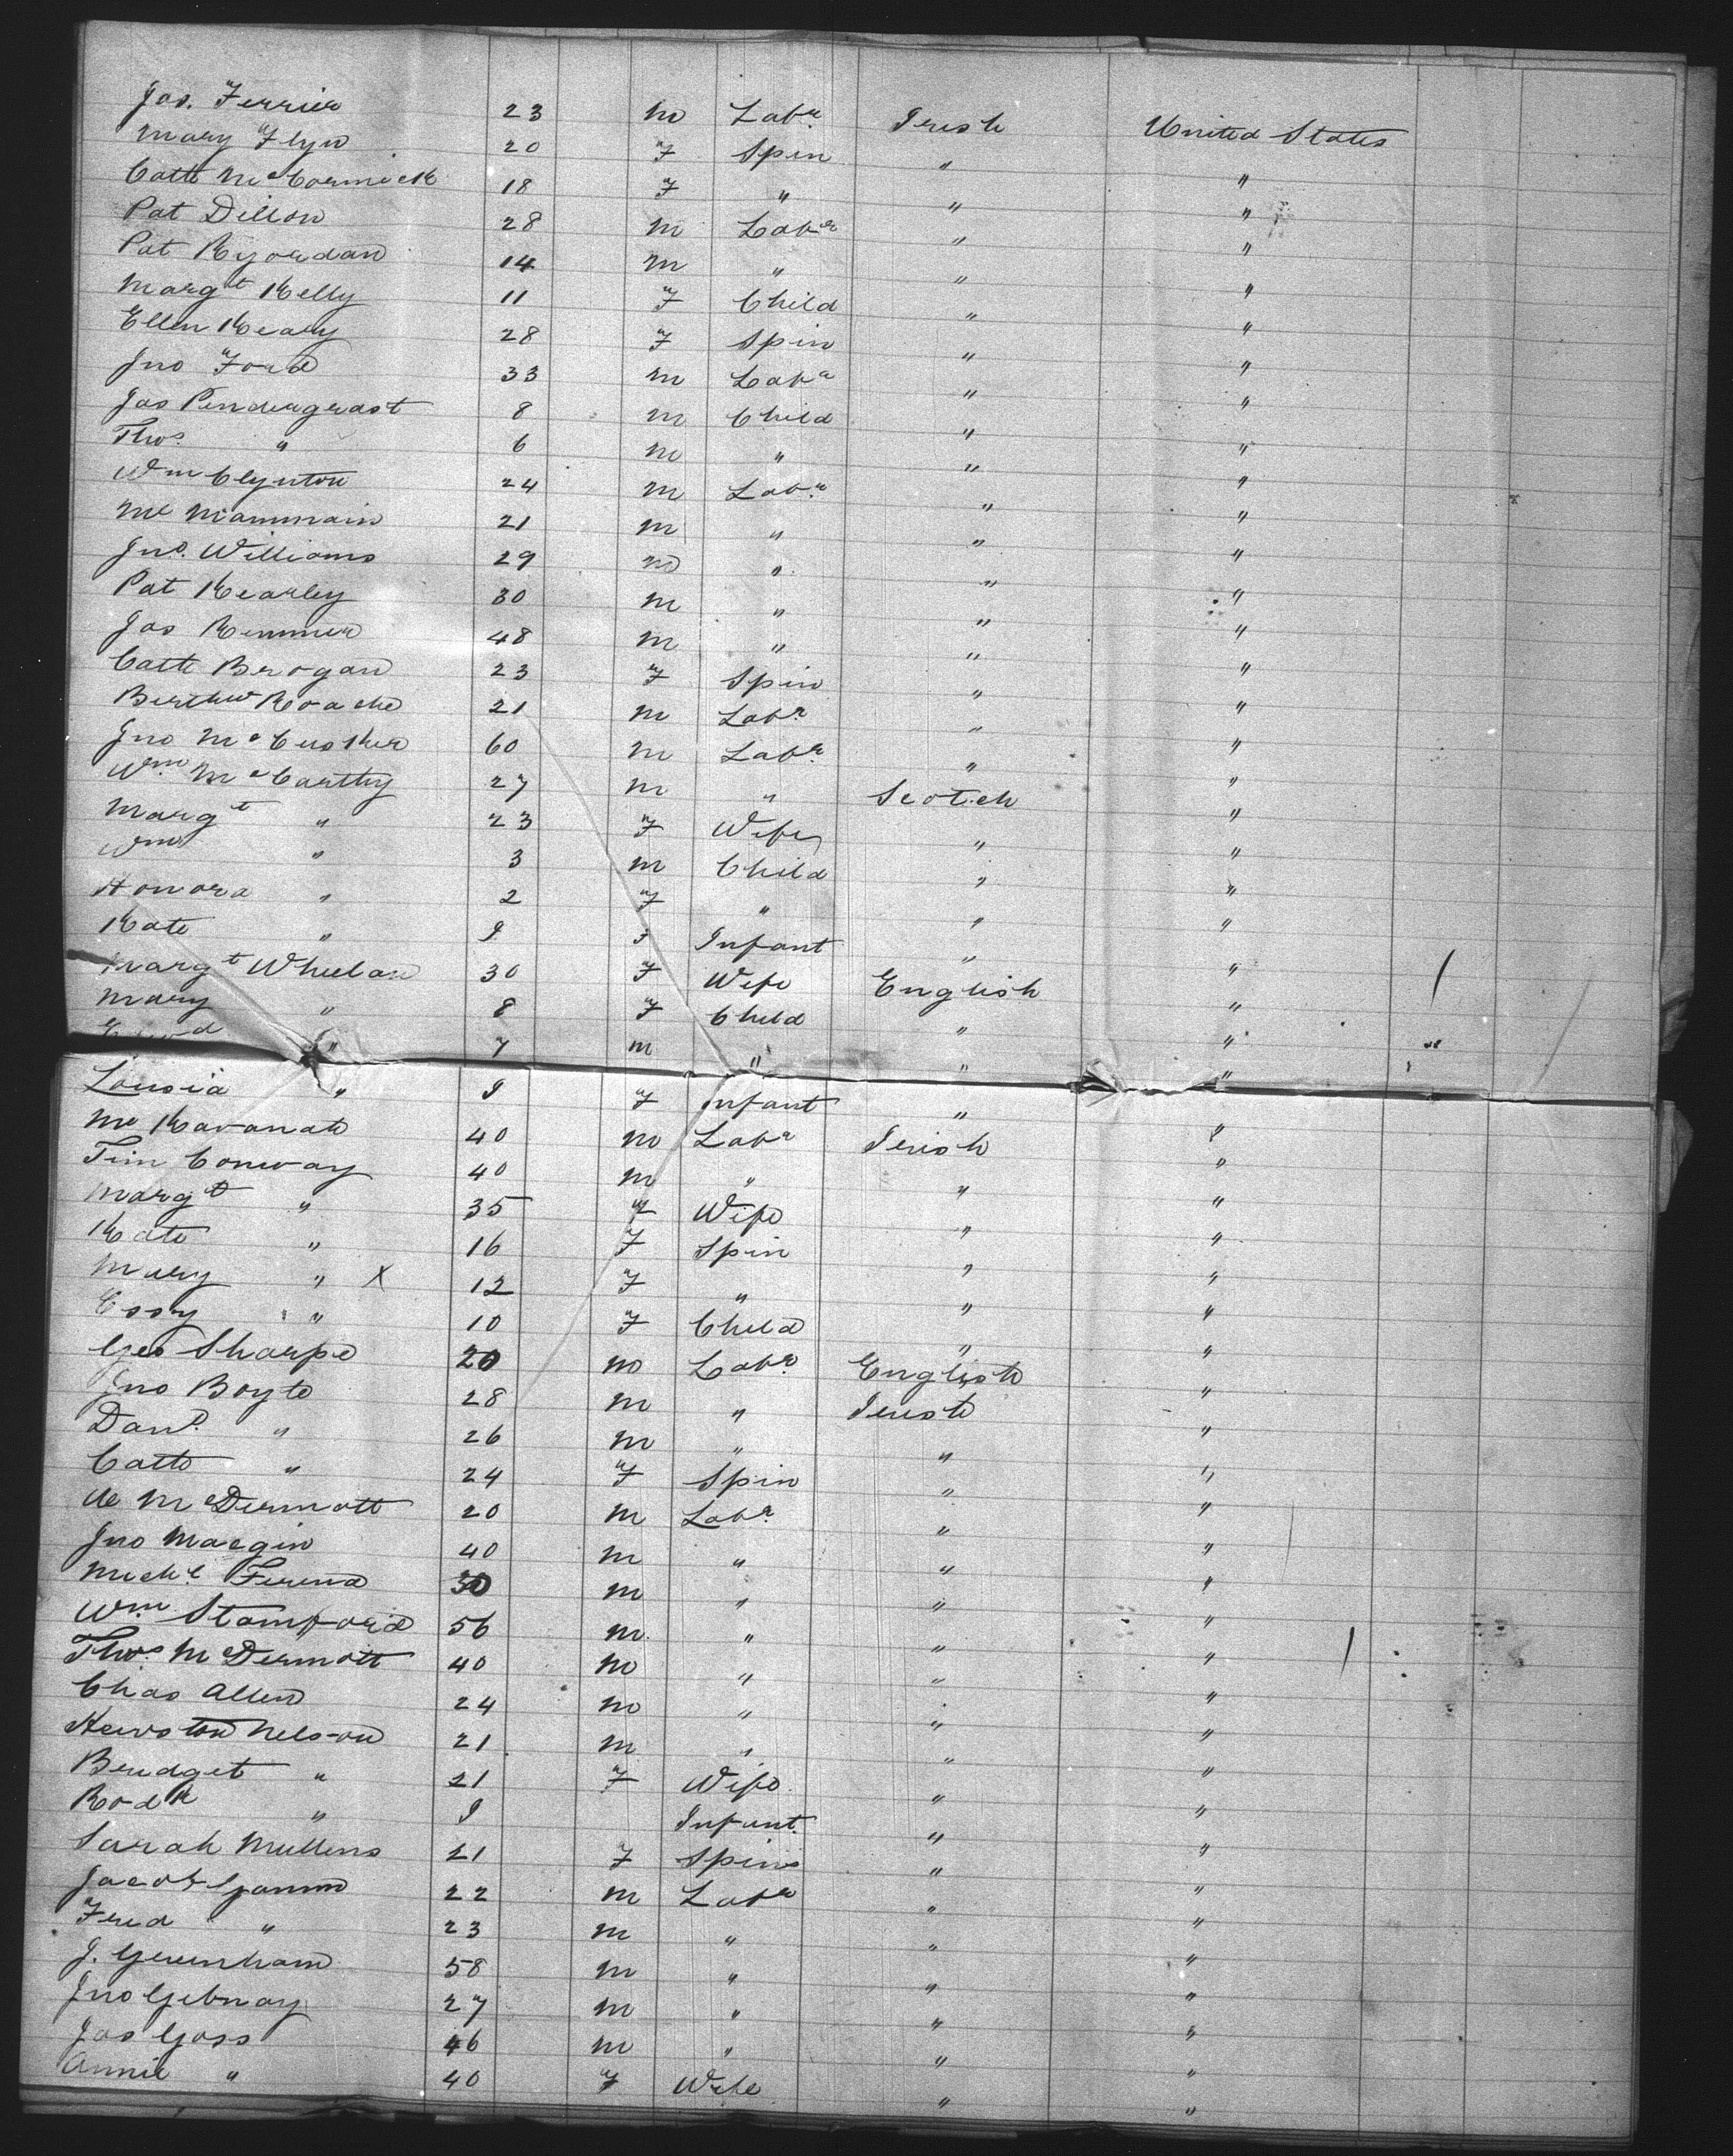 Jas. Ferrier 23 m Labr Irish United States
Mary Flyn 20 F Spin " "
Cath McCormick 18 F " " "
Pat Dillon 28 m Labr " "
Pat Ryordan 14 m " " "
Margt Kelly 11 F Child " "
Ellen Keary 28 F Spin " "
Jno Ford 33 m Labr " "
Jas Pendergrast 8 m Child " "
Thos " 6 m " " "
Wm Clynton 24 m Labr " "
Ml 21 m " " "
Jno. Williams 29 m " " "
Pat Kearley 30 m " " "
Jas 48 m " " "
Cath Brogan 23 F Spin " "
Roache 21 m Labr " "
Jno McCusker 60 m Labr " "
Wm McCarthy 27 m " Scotch "
Margt " 23 F Wife " "
Wm " 3 m Child " "
Honora " 2 F " " "
Kate " I F Infant " "
Margt Wheelan 30 F Wife English "
Mary " 8 F Child " "
" 7 m " " "
Lousia " I F Infant " "
Ml Kavanah 40 m Labr Irish "
Tim Conway 40 m " " "
Margt " 35 F Wife " "
Kate " 16 F Spin " "
Mary " X 12 F " " "
Essy " 10 F Child " "
Geo Sharpe 20 m Labr English "
Jno Boyle 28 m " Irish "
Danl " 26 m " " "
Cath " 24 F Spin " "
McDermott 20 m Labr " "
Jno Maegin 40 m " " "
Michl 30 m " " "
Wm Stamford 56 m " " "
Thos McDermott 40 m " " "
Chas Allen 24 m " " "
Nelson 21 m " " "
Bridget " 21 F Wife " "
Rodk " I Infant " "
Sarah Mullens 21 F Spins " "
Jacob 22 m Labr " "
Fred " 23 m " " "
J. Greenham 58 m " " "
Jno Gibnay 27 m " " "
Jas Goss 46 m " " "
Annie " 40 F Wife " "